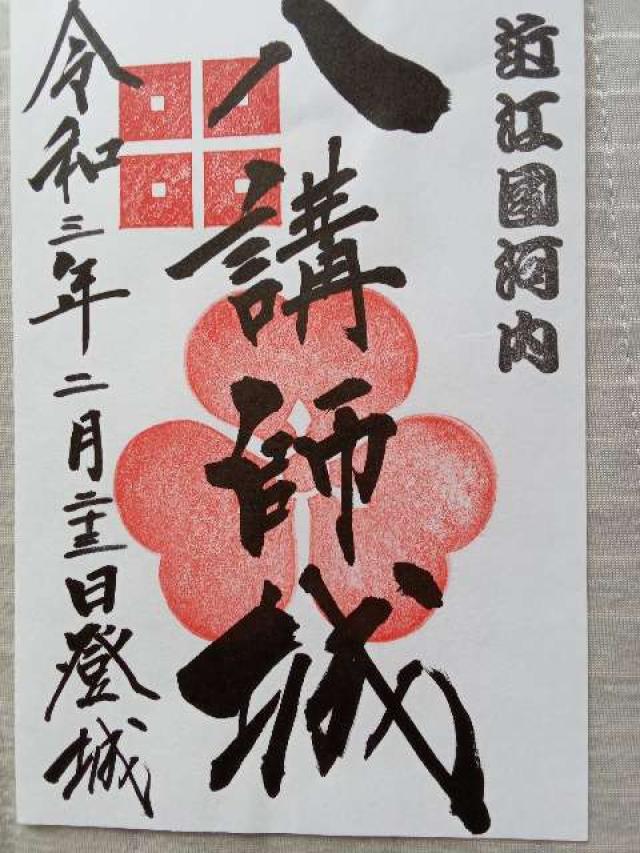 近江国河内
八講師城
令和三年二月二十三日登城